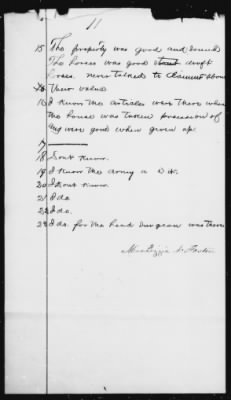 11
15 The property was good and sound
The horses was good stout draft
horses. never talked to Claimant about
their value
16 I know the articles were there when
the house was taken possession of
and were good when given up.
17
18 Dont know.
19 I know the army a
20 I Dont know.
21 I do.
22 I do.
23 I do. for the head Surgeon was there